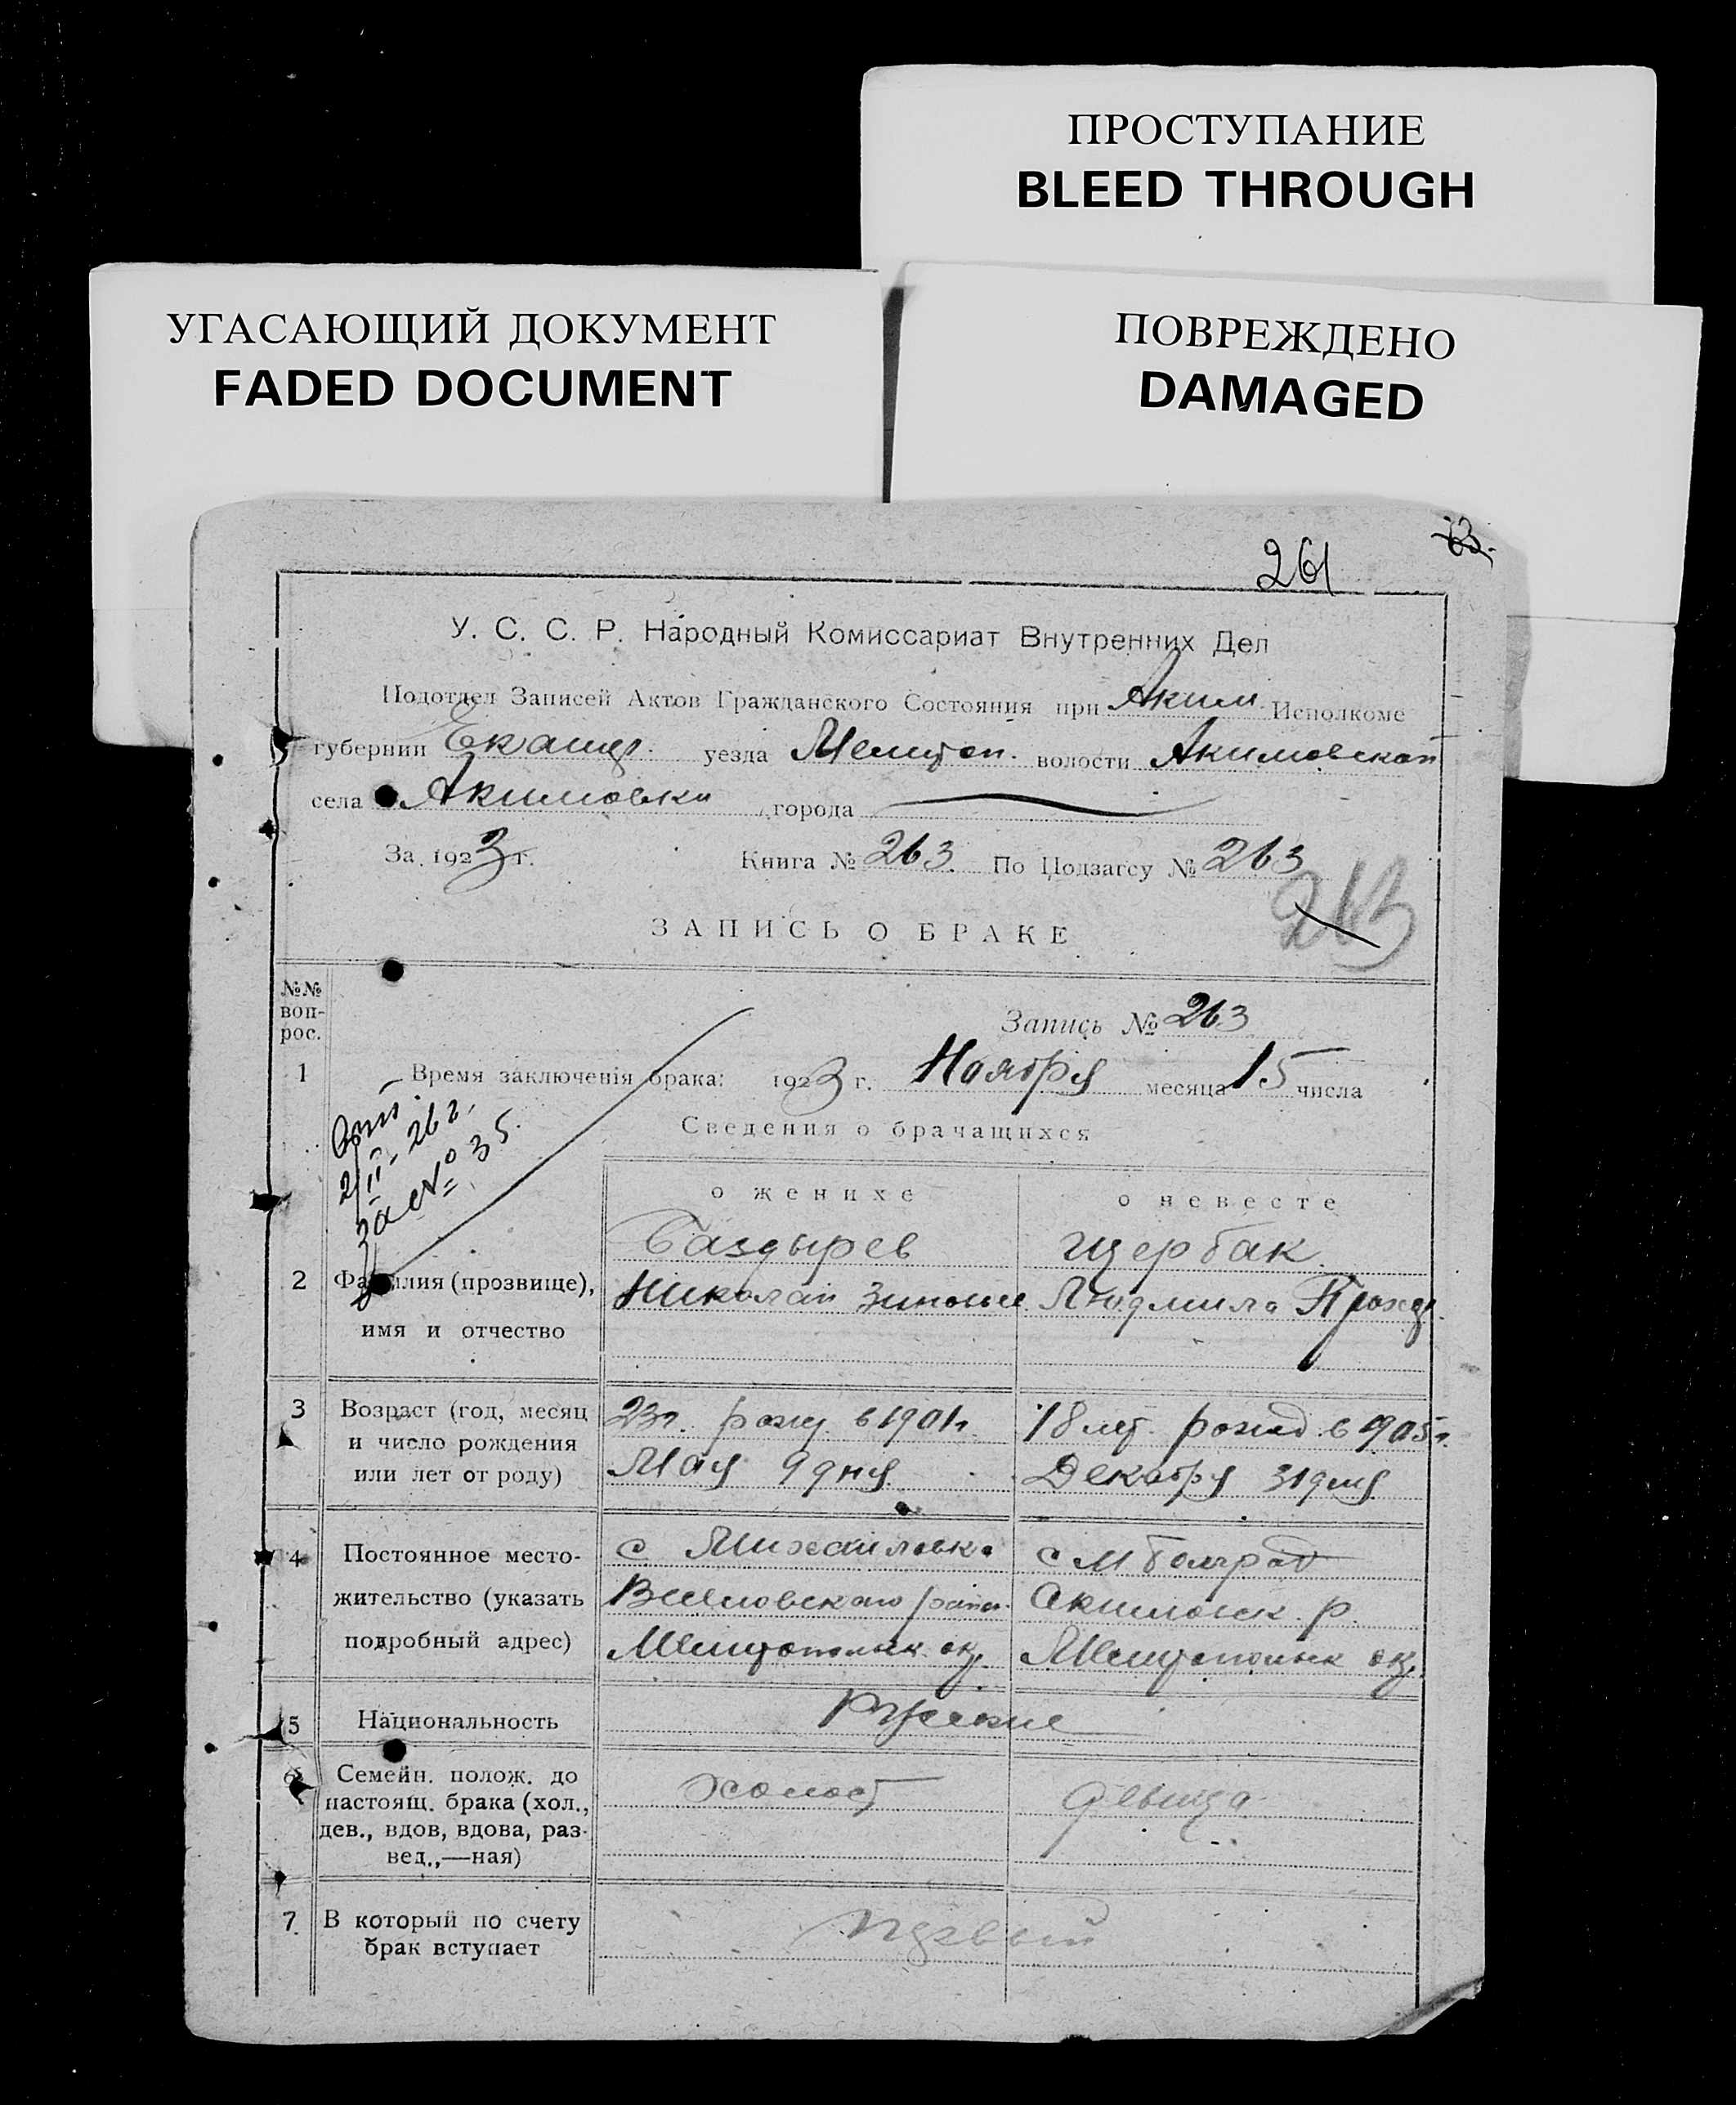 ПРОСТУПАНИЕ
BLEED THROUGH
УГАСАЮЩИЙ ДОКУМЕНТ
FADED DOCUMENT
ПОВРЕЖДЕНО
DAMAGED
63.
261
У. С. С. Р. Народный Комиссариат Внутренних Дел
Подотдел Записей Актов Гражданского Состояния при Аким. Исполкоме
губернии Екатер. уезда Мелитоп. волости Акимовской
села Акимовки города
За 1923 г. Книга № 263. По Подзагсу № 263
263
ЗАПИСЬ О БРАКЕ
№№ вопрос.
Запись № 263
1 Время заключенія брака: 1923 г. Ноября месяца 15 числа
2/II-26 г.
за № 35.
Сведения о брачащихся
о женихе о невесте
2 Фамилия (прозвище), имя и отчество
Баздырев
Николай Зиновье
Щербак
Людмила
3 Возраст (год, месяц и число рождения или лет от роду)
23 г. рожд. в 1901 г.
Мая 9 дня
18 лет. рожд. в 905 г.
Декабря 31 дня
4 Постоянное местожительство (указать подробный адрес)
с Михайловка
района
Мелитопольск. ок.
с М Болград
Акимовск. р.
Мелитопольск ок.
5 Национальность
Русские
6 Семейн. полож. до настоящ. брака (хол., дев., вдов, вдова, развед.,—ная)
Холост
девица
7. В который по счету брак вступает
первый